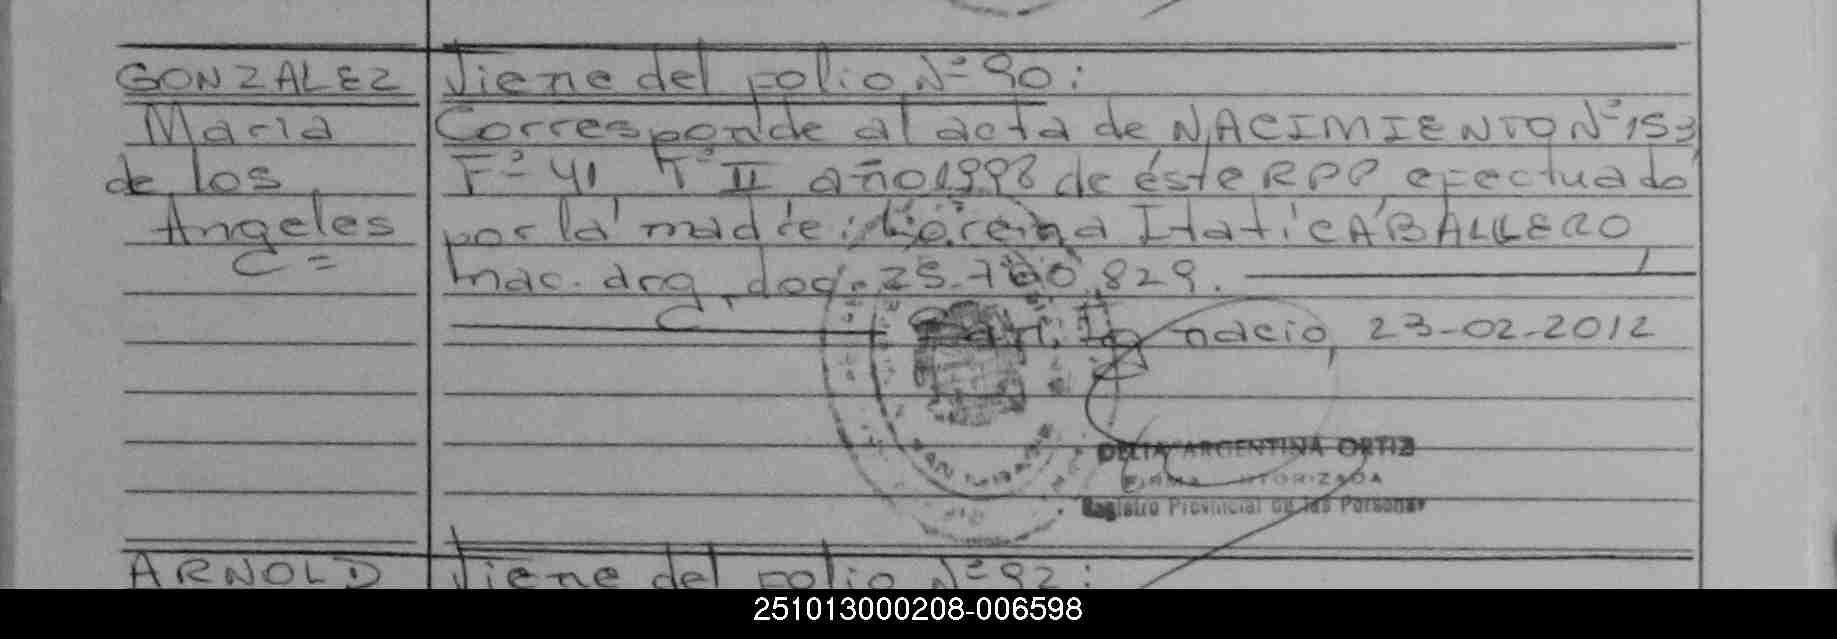 GONZALEZ Viene del Folio Nº 90:
Maria Corresponde al acta de NACIMIENTO Nº 153
de los Fº 41 Tº II año 1998 de éste RPP efectuado
Angeles por la madre: Lorena Itatí CABALLERO,
C= nac. arg. doc. 25.700.829.
San Ignacio, 23-02-2012
DELIA ARGENTINA ORTIZ
FIRMA AUTORIZADA
Registro Provincial de las Personas
ARNOLD Viene del Folio Nº 92:
251013000208-006598